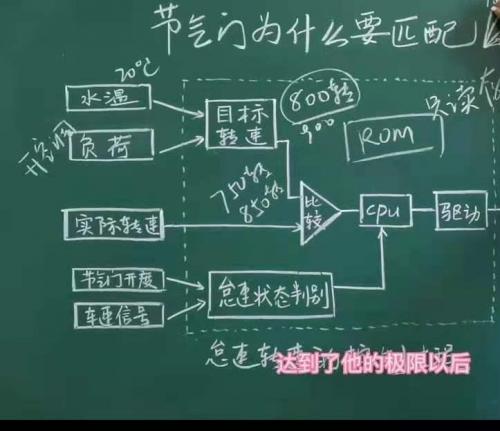 节气门为什么要匹配
20℃
水温
目标
转速
800转
900
ROM
只读
开空调
负荷
750转
850转
实际转速
比较
CPU
驱动
节气门开度
怠速状态判别
车速信号
怠速转速的控制
达到了他的极限以后